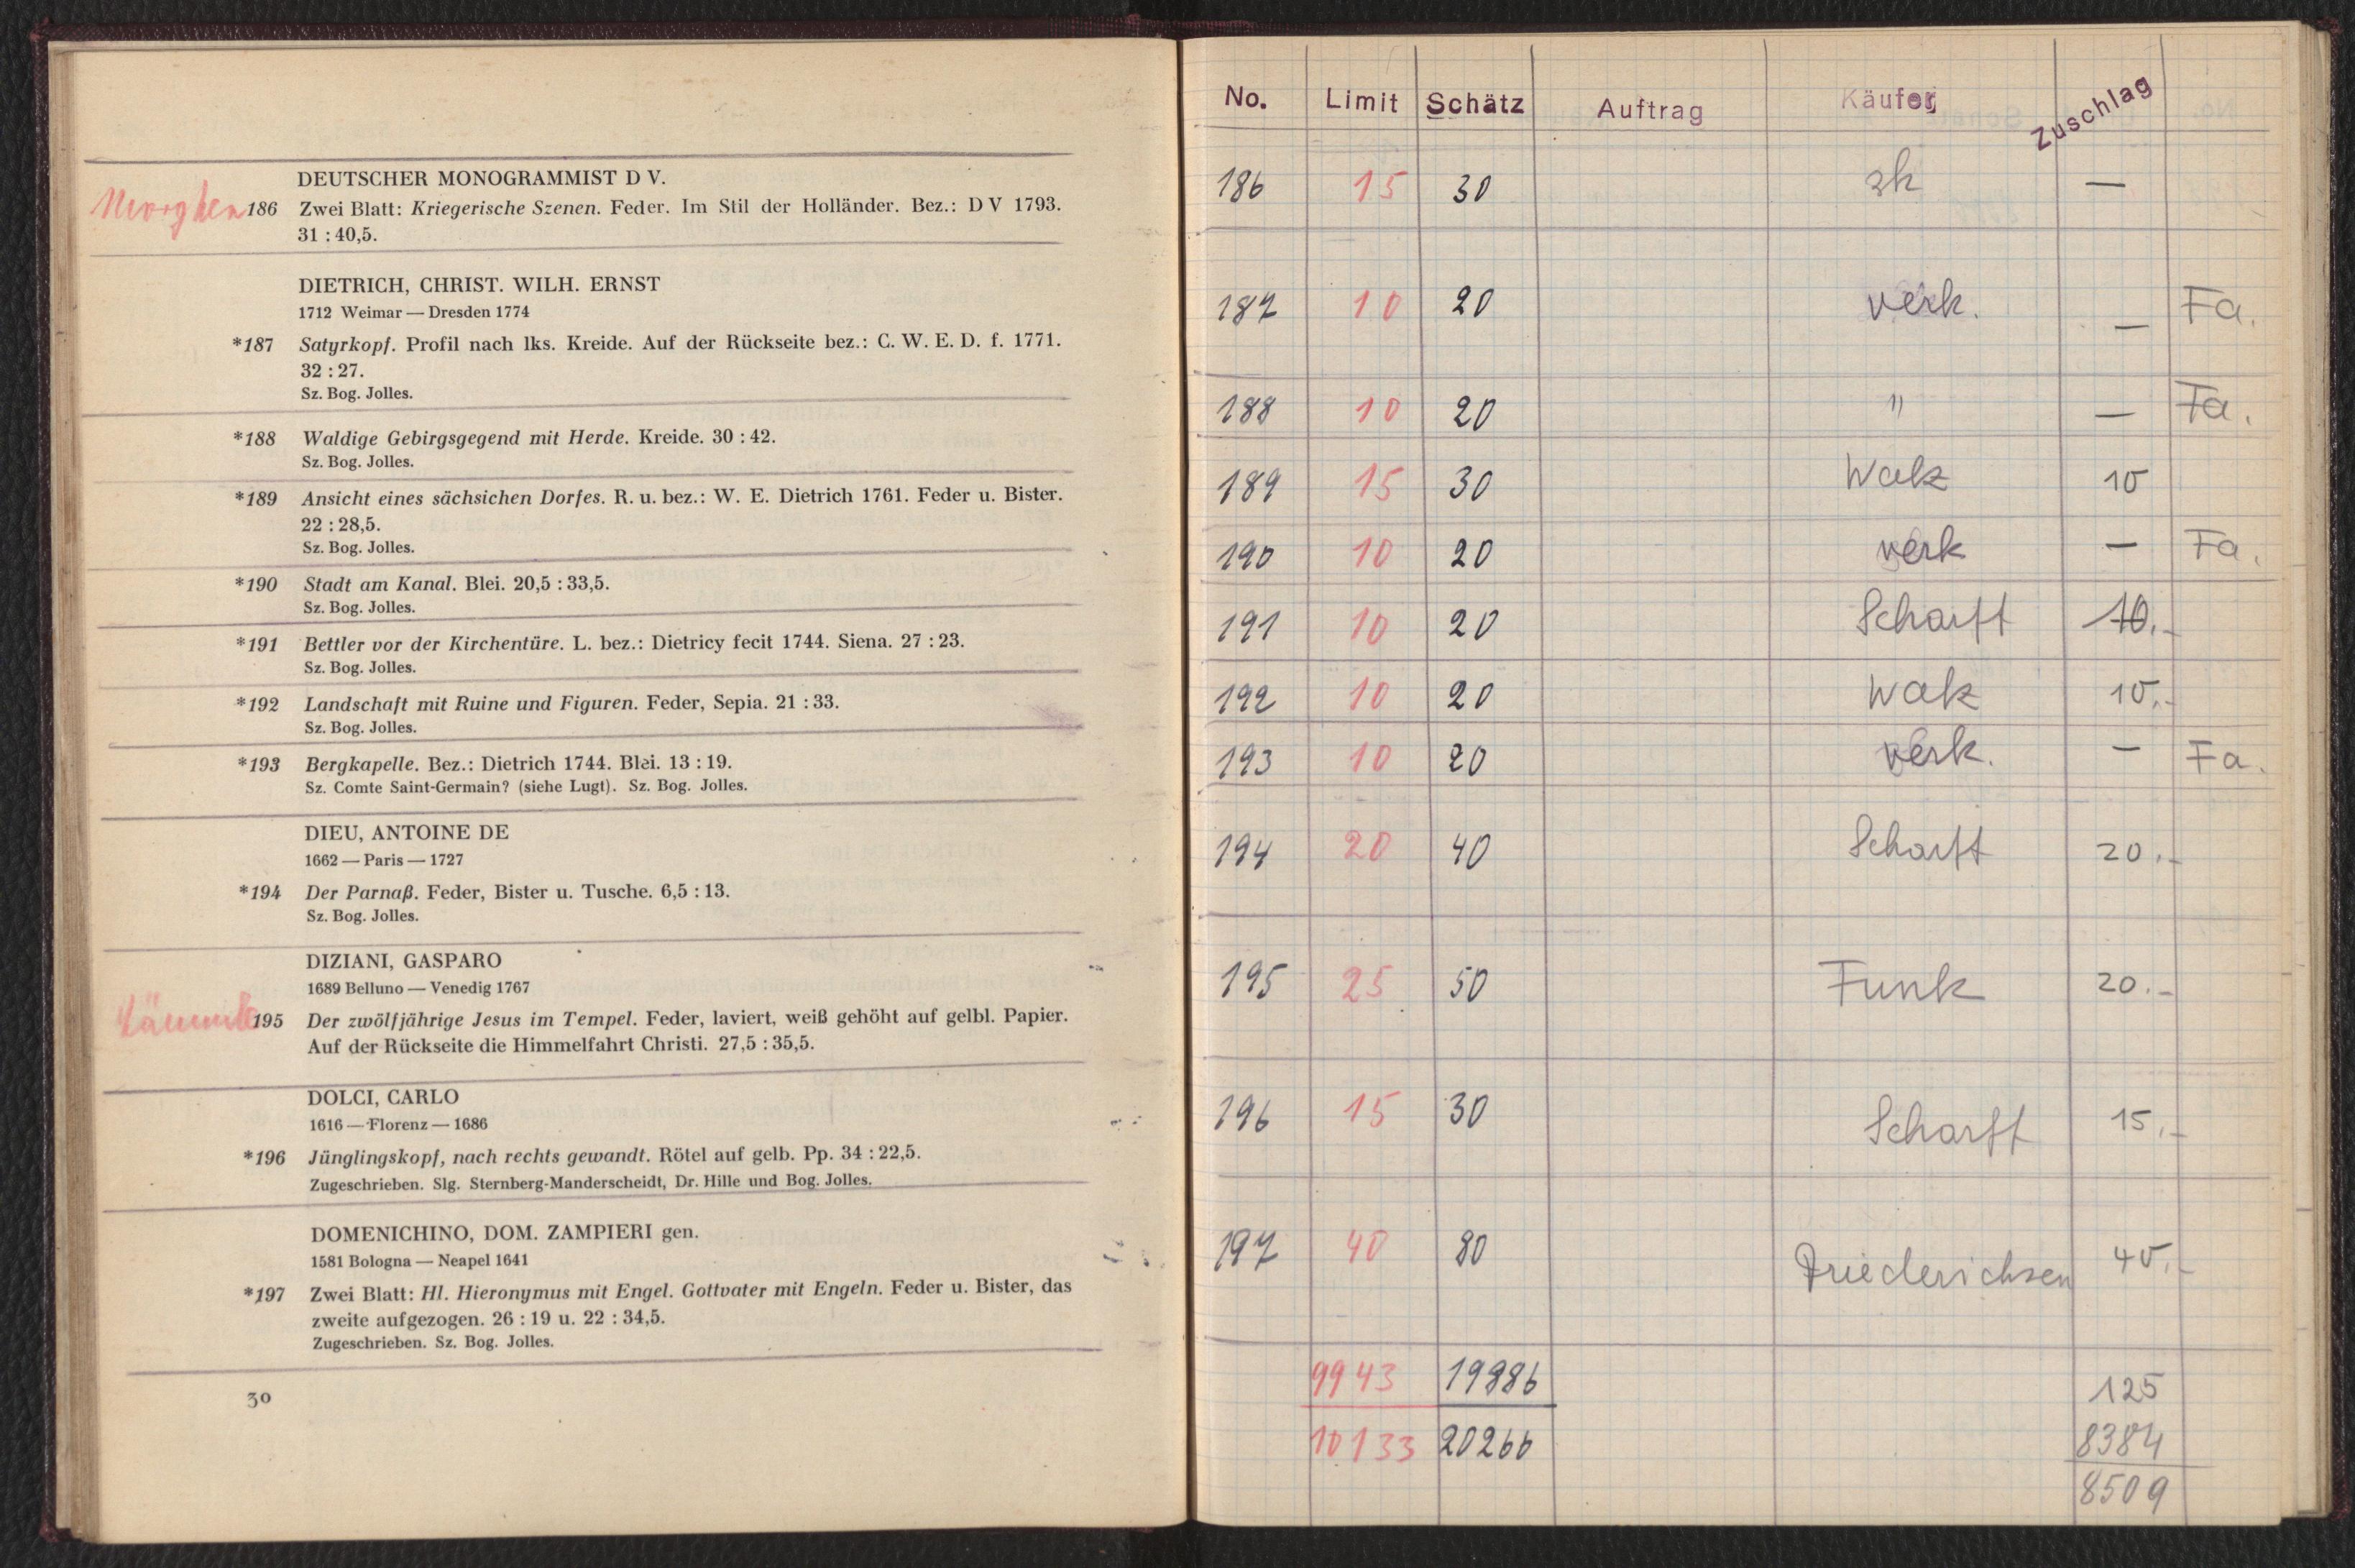 DEUTSCHER MONOGRAMMIST D V.
186 Zwei Blatt: Kriegerische Szenen. Feder. Im Stil der Holländer. Bez.: D V 1793.
31 : 40,5.
DIETRICH, CHRIST. WILH. ERNST
1712 Weimar — Dresden 1774
*187 Satyrkopf. Profil nach lks. Kreide. Auf der Rückseite bez.: C. W. E. D. f. 1771.
32 : 27.
Sz. Bog. Jolles.
*188 Waldige Gebirgsgegend mit Herde. Kreide. 30 : 42.
Sz. Bog. Jolles.
*189 Ansicht eines sächsichen Dorfes. R. u. bez.: W. E. Dietrich 1761. Feder u. Bister.
22 : 28,5.
Sz. Bog. Jolles.
*190 Stadt am Kanal. Blei. 20,5 : 33,5.
Sz. Bog. Jolles.
*191 Bettler vor der Kirchentüre. L. bez.: Dietricy fecit 1744. Siena. 27 : 23.
Sz. Bog. Jolles.
*192 Landschaft mit Ruine und Figuren. Feder, Sepia. 21 : 33.
Sz. Bog. Jolles.
*193 Bergkapelle. Bez.: Dietrich 1744. Blei. 13 : 19.
Sz. Comte Saint-Germain? (siehe Lugt). Sz. Bog. Jolles.
DIEU, ANTOINE DE
1662 — Paris — 1727
*194 Der Parnaß. Feder, Bister u. Tusche. 6,5 : 13.
Sz. Bog. Jolles.
DIZIANI, GASPARO
1689 Belluno — Venedig 1767
195 Der zwölfjährige Jesus im Tempel. Feder, laviert, weiß gehöht auf gelbl. Papier.
Auf der Rückseite die Himmelfahrt Christi. 27,5 : 35,5.
DOLCI, CARLO
1616 — Florenz — 1686
*196 Jünglingskopf, nach rechts gewandt. Rötel auf gelb. Pp. 34 : 22,5.
Zugeschrieben. Slg. Sternberg-Manderscheidt, Dr. Hille und Bog. Jolles.
DOMENICHINO, DOM. ZAMPIERI gen.
1581 Bologna — Neapel 1641
*197 Zwei Blatt: Hl. Hieronymus mit Engel. Gottvater mit Engeln. Feder u. Bister, das
zweite aufgezogen. 26 : 19 u. 22 : 34,5.
Zugeschrieben. Sz. Bog. Jolles.
30
No. Limit Schätz Auftrag Käufer Zuschlag
186 15 30 zk —
187 10 20 verk. — Fa.
188 10 20 " — Fa.
189 15 30 Walz 10
190 10 20 verk — Fa.
191 10 20 Scharff 10.-
192 10 20 Walz 10.-
193 10 20 verk. — Fa.
194 20 40 Scharff 20.-
195 25 50 Funk 20.-
196 15 30 Scharff 15.-
197 40 80 Friederichsen 40.-
9943 19886 125
10133 20266 8384
8509